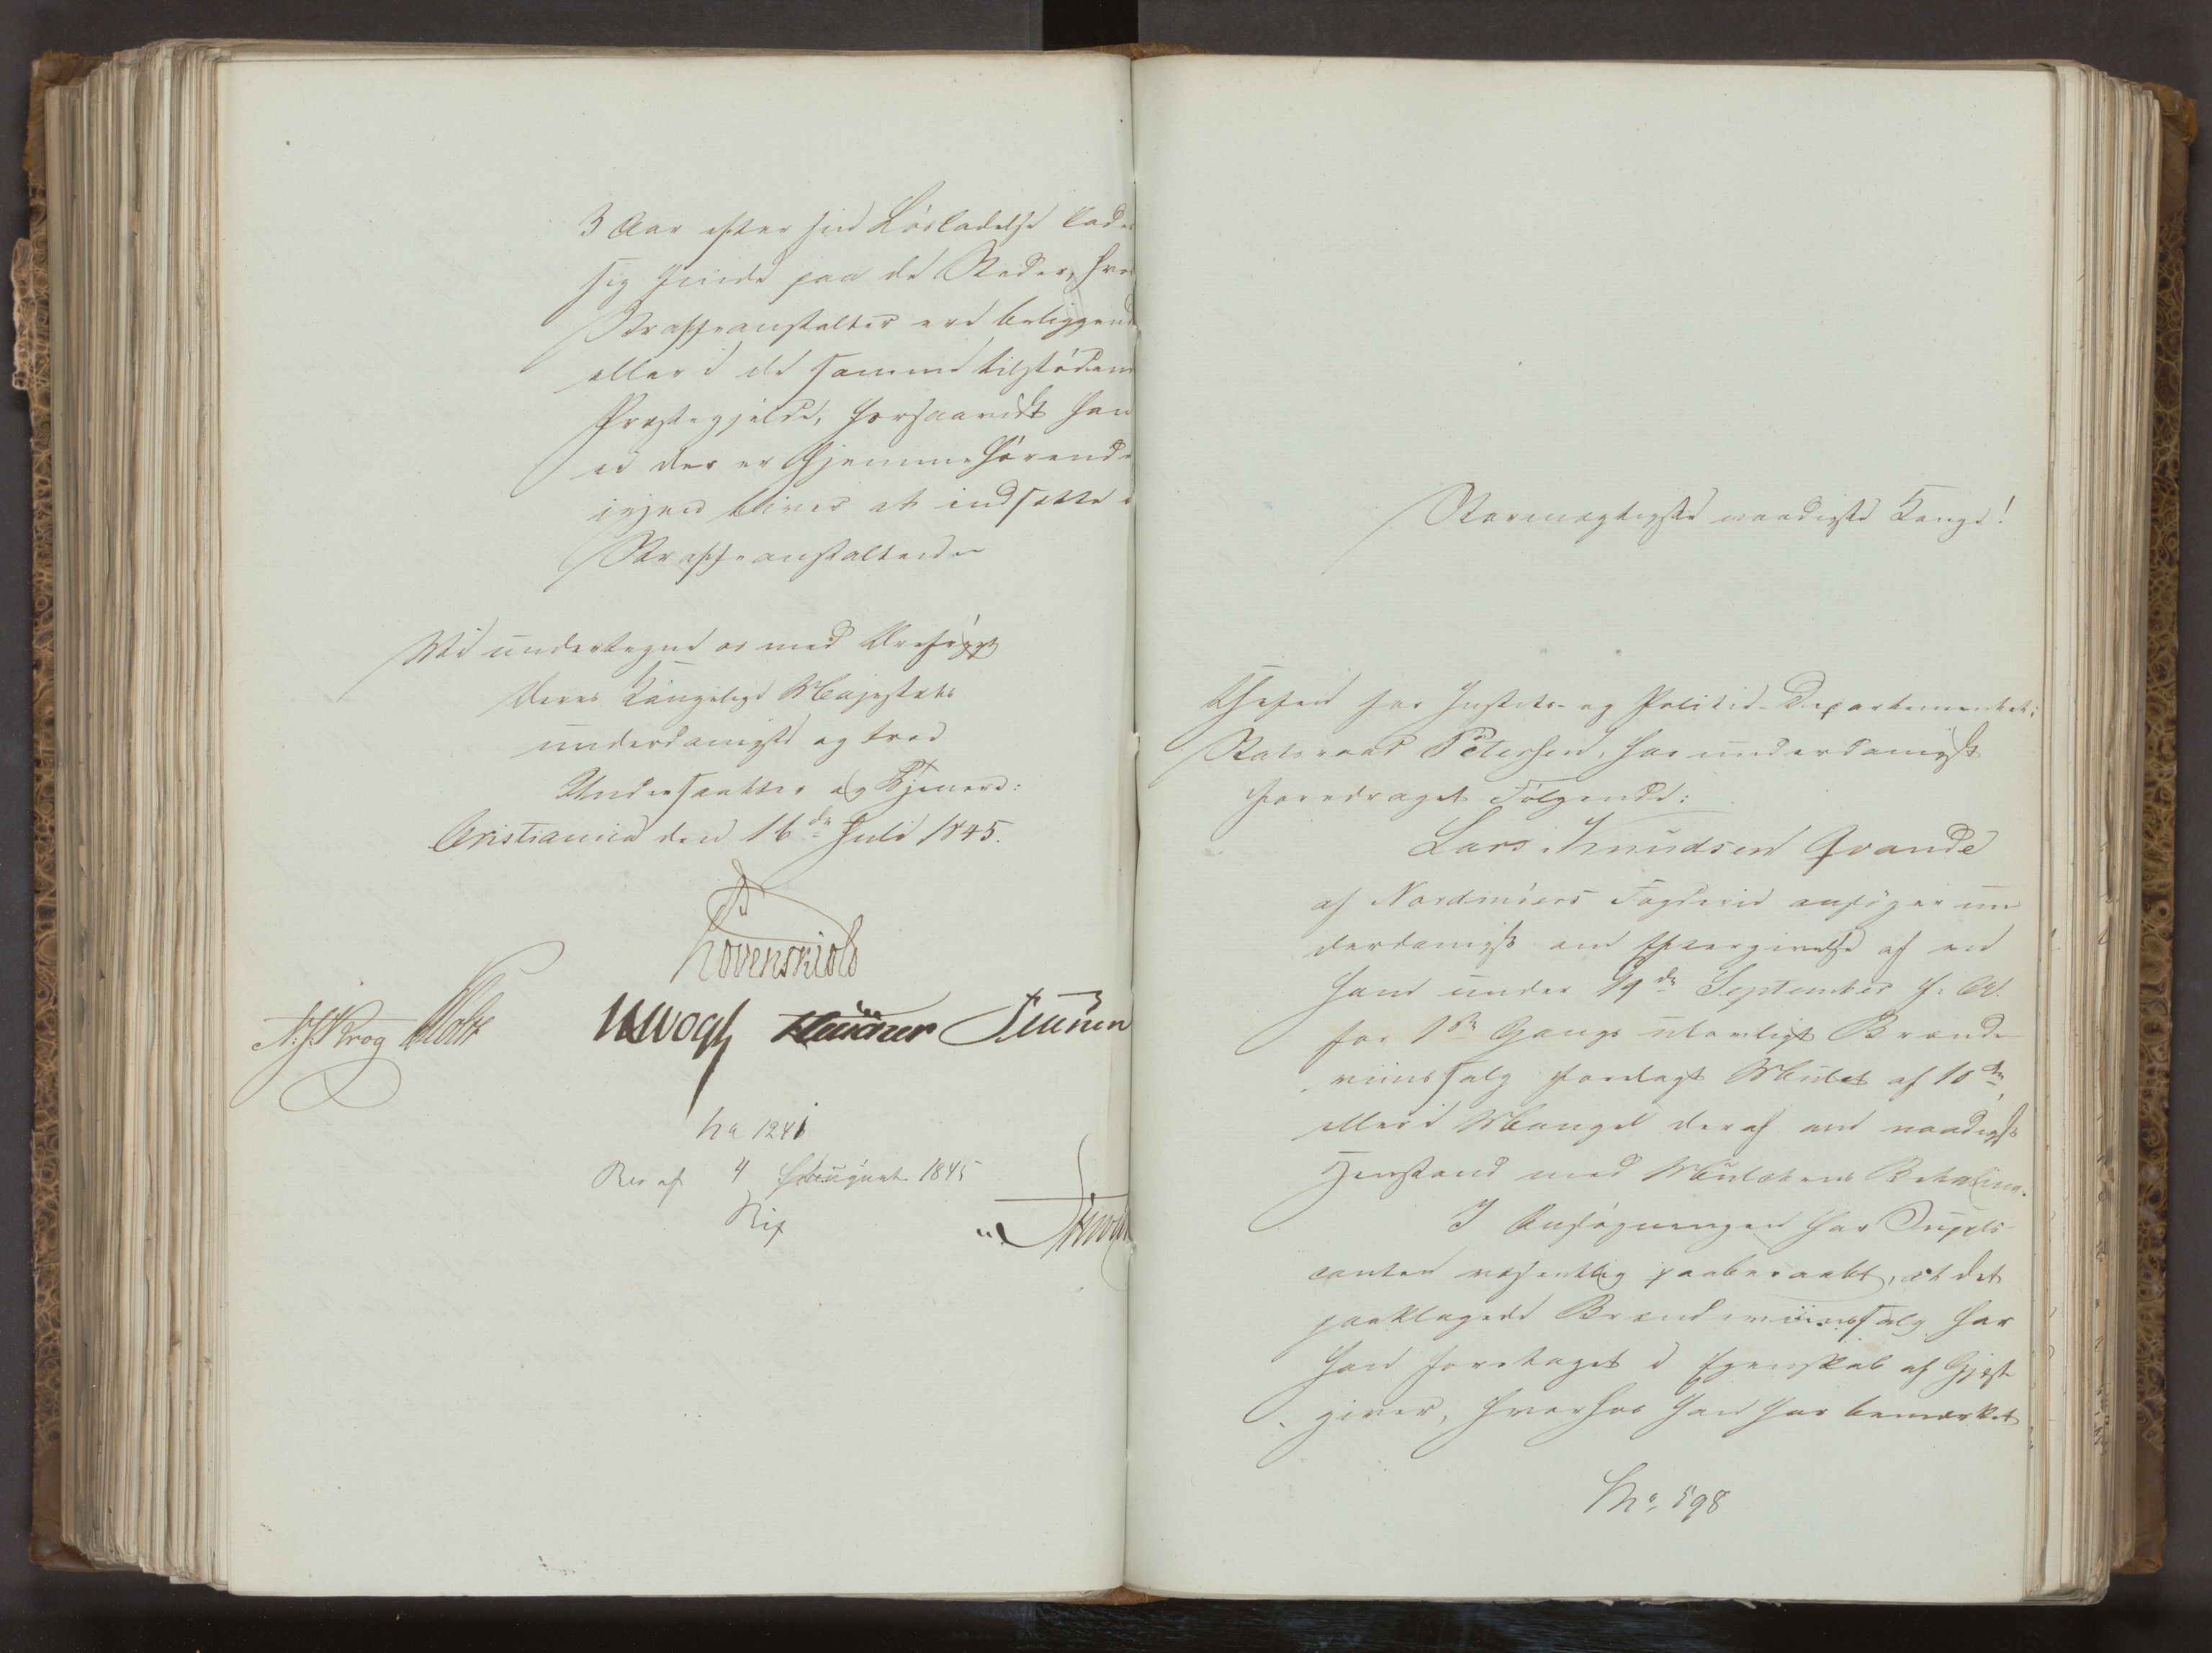 3 Aar efter sin Løsladelse lade
sig finde paa de Steder, hvor
Straffeanstalter ere beliggende
eller i de samme tilstødende
Præstegjelde, forsaavidt han
ei der er hjemmehørende
igjen bliver at indsætte i
Straffeanstalten
Vi undertegne os med Ærefrygt
Deres Kongelige Majestæts
underdanigste og troe
Undersaatter og Tjenere:
Christiania den 16de Juli 1845.
Løvenskiold
N. J. Krog Holst JHVogt
No 1241
Res af 4 August 1845
Stormægtigste naadigste Konge!
Chefen for Justits- og Politie-Departementet,
Statsraad Petersen, har underdanigst
foredraget Følgende:
Lars Knudsen Qvande
af Nordmørs Fogderie ansøger un
derdanigst om Eftergivelse af en
ham under 19de September f: A.
for 1ste Gangs ulovligt Brænde
viinssalg forelagt Mulct af 10
eller i Mangel deraf om naadigst
Henstand med Mulctens Betaling.
I Ansøgningen har Suppli
canten væsentlig paaberaabt, at det
paaklagede Brændeviinssalg har
han foretaget i Egenskab af Gjæst
giver, hvorhos han har bemærket
No 598